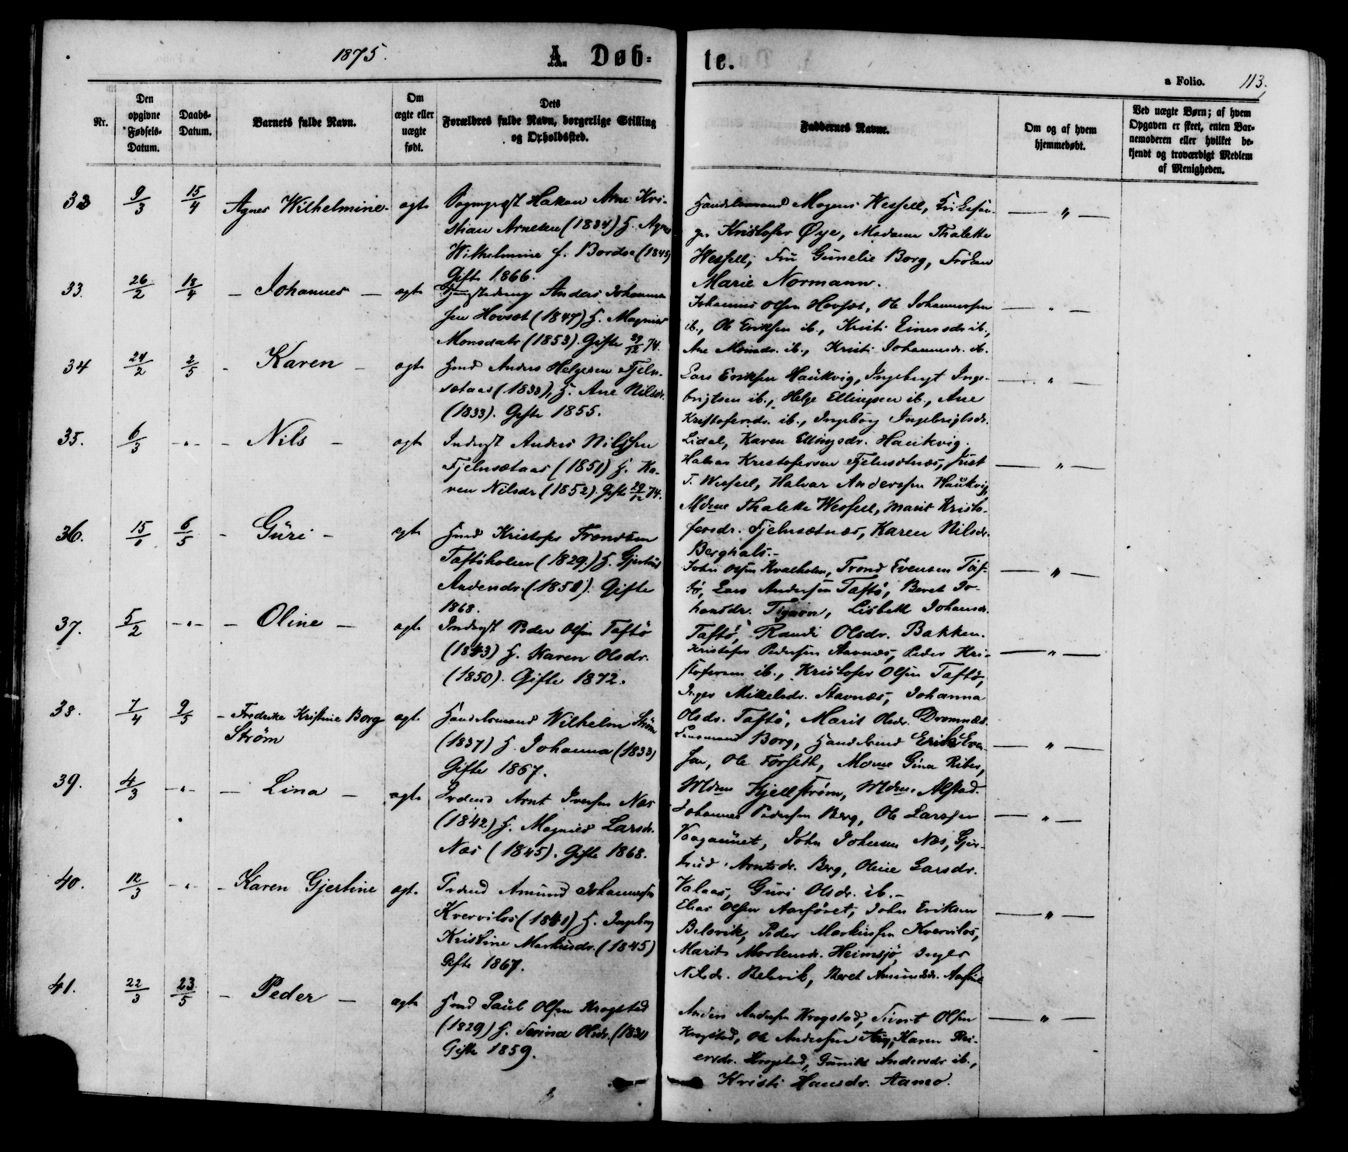 1875.
A. Døb-
te.
a Folio.
113.
Nr.
Den
opgivne
Fødsels-
Datum.
Daabs-
Datum.
Barnets fulde Navn.
Om
ægte eller
uægte
født.
Dets
Forældres fulde Navn, borgerlige Stilling
og Opholdssted.
Faddernes Navne.
Om og af hvem
hjemmedøbt.
Ved uægte Børn; af hvem
Opgaven er skeet, enten Bar-
nemoderen eller hvilket be-
kjendt og troværdigt Medlem
af Menigheden.
9/3 15/4 Agnes Wilhelmine - ægte
Sogneprest Hakon Arne Kri-
stian Arnesen (1834) H. Agnes
Wilhelmine f. Bordoe (1845)
Gifte 1866.
Handelsmand Mogens Wessel,
Kristofer Øye, Madame Thalette
Wessel, Fru Gunelie Borg, Frøken
Marie Normann. — " —
33. 26/2 18/4 - Johannes - ægte
Anders Johanne-
sen Hovset (1847) H. Magnild
Monsdatr (1853). Gifte 74.
Johannes Olsen Hovset, Ole Johannessen
ib., Ole Eriksen ib., Kristi Einersdr. ib.
Ane Monsdr. ib., Kristi Johannesdr. ib. — " —
34 24/2 2/5 - Karen - ægte
Hmd Anders Helgesen Fjeln-
sætaas (1833), H. Ane Nilsdr.
(1833). Gifte 1855.
Lars Eriksen Haukvig, Ingebrigt Inge-
brigtsen ib., Helge Ellingsen ib., Ane
Kristofersdr. ib., Ingeborg Ingebrigtsdr.
Lidal, Karen Ellingsdr. Haukvig. — " —
35. 6/3 - " - - Nils - ægte
Inderst Anders Nilssen
Fjelnsætaas (1851) H. Ka-
ren Nilsdr (1852). Gift 74.
Halvar Kristofersen Fjelnsætnæs, Just
T. Wessel, Halvar Anderssen Haukvig,
Mdme Thalette Wessel, Marit Kristo-
fersdr. Fjelnsætnæs, Karen Nilsdr.
Berghals. — " —
36. 15/ 6/5 - Guri - ægt
Hmd Kristofer Trondsen
Taftøholm (1829) H. Gjertrud
Andersdr. (185). Gifte
1868.
John Olsen Kvalholm, Trond Evensen Taf-
tø, Lars Andersen Taftø, Beret Jo-
hansdr. Lisbett Johansdr.
Taftø, Randi Olsdr. Bakken. — " —
37. 5/2 - " - - Oline - ægte
Inderst Peder Olsen Taftø
(1843) H. Karen Olsdr.
(1850). Gifte 1872.
Kristofer Pedersen Aavnæs, Peder Kri-
stofersen ib., Kristofer Olsen Taftø,
Inger Mikkelsdr. Aavnæs, Johanna
Olsdr. Taftø, Marit Olsdr. Dromnæs — " —
38. 7/4 9/5 - Fredrika Kristine Borg
Strøm ægte
Handelsmand Wilhelm Strøm
(1837) H. Johanna (1833)
Gifte 1867.
Lensmand Borg, Handelsmd Erik Even-
sen, Ole Forseth, Mdme Gina Ribes,
Mdme Kjellstrøm, Mdme Alstad. — " —
39. 4/3 - " - - Lina - ægte
Arnt Iversen Næs
(1842) H. Magnild Larsdr.
Næs (1845). Gifte 1868.
Johannes Pedersen Berg, Ole Larssen
Vaagaunet, John Johnsen Næs, Gjer-
trud Arntsdr. Berg, Oline Larsdr.
Valaas, Guri Olsdr. ib. — " —
40. 12/3 - " - - Karen Gjertine ægte
Amund Johannessen
Kvervilos (1841) H. Ingeborg
Kristine Markusdr. (1845)
Gifte 1867.
Elias Olsen Aarsøret, John Eriksen
Belsvik, Peder Markussen Kvervilos,
Marit Mortensdr. Heimsjø, Inger
Nilsdr. Belsvik, Beret Amundsdr. — " —
41. 22/3 23/5 - Peder - ægte
Hmd Paul Olsen Krogstad
(1829) H. Serina Olsdr. (183)
Gifte 1859.
Anders Andersen Krogstad, Sivert Olsen
Krogstad, Ole Andersen Karen Pe-
dersdr. Krogstad, Gunild Andersdr ib.,
Kristi Hansdr. Aamo. — " —